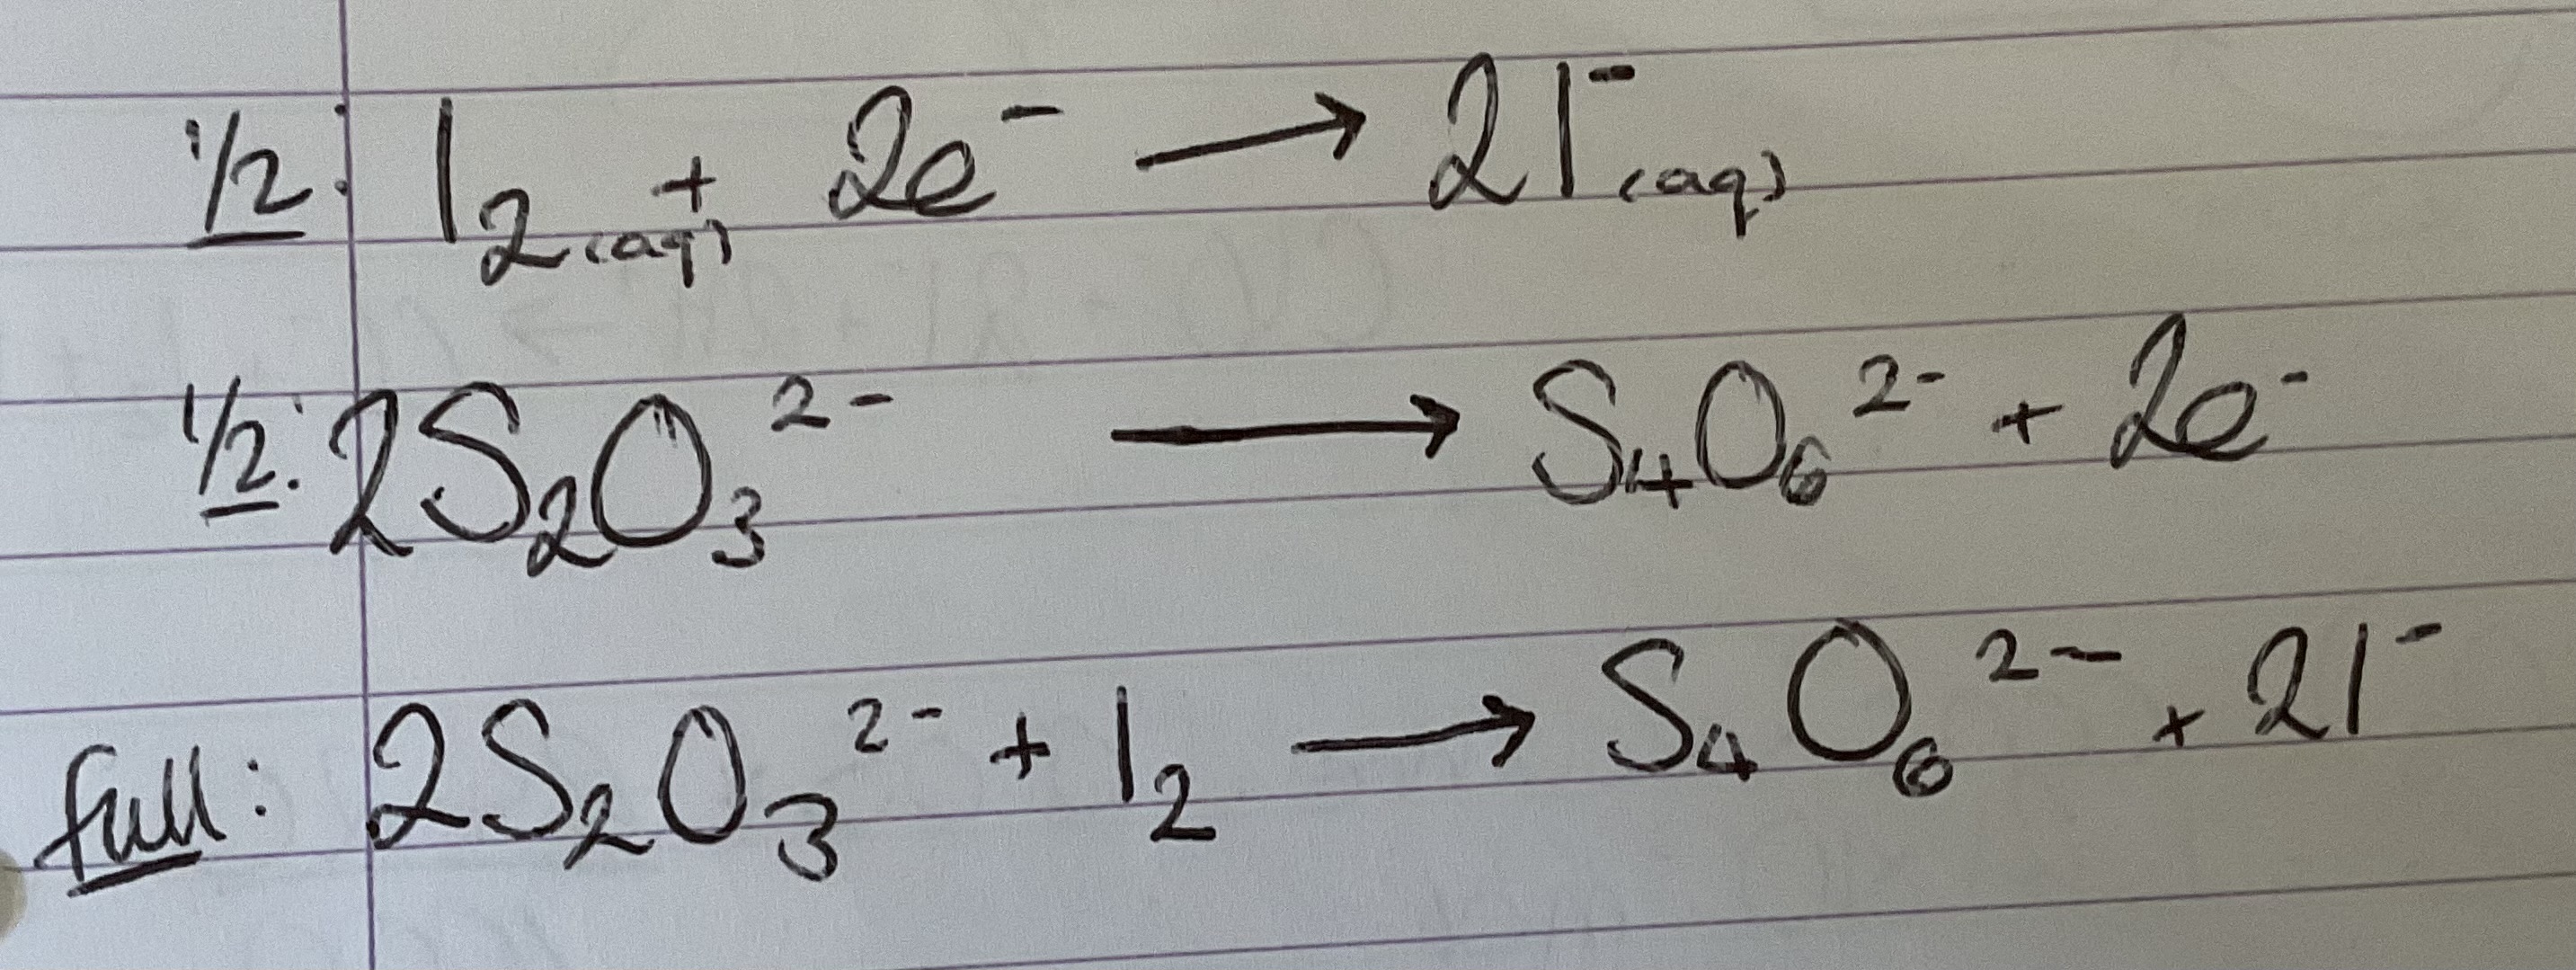 1/2: I₂(aq) + 2e⁻ → 2I⁻(aq)
1/2: 2S₂O₃²⁻ → S₄O₆²⁻ + 2e⁻
full: 2S₂O₃²⁻ + I₂ → S₄O₆²⁻ + 2I⁻